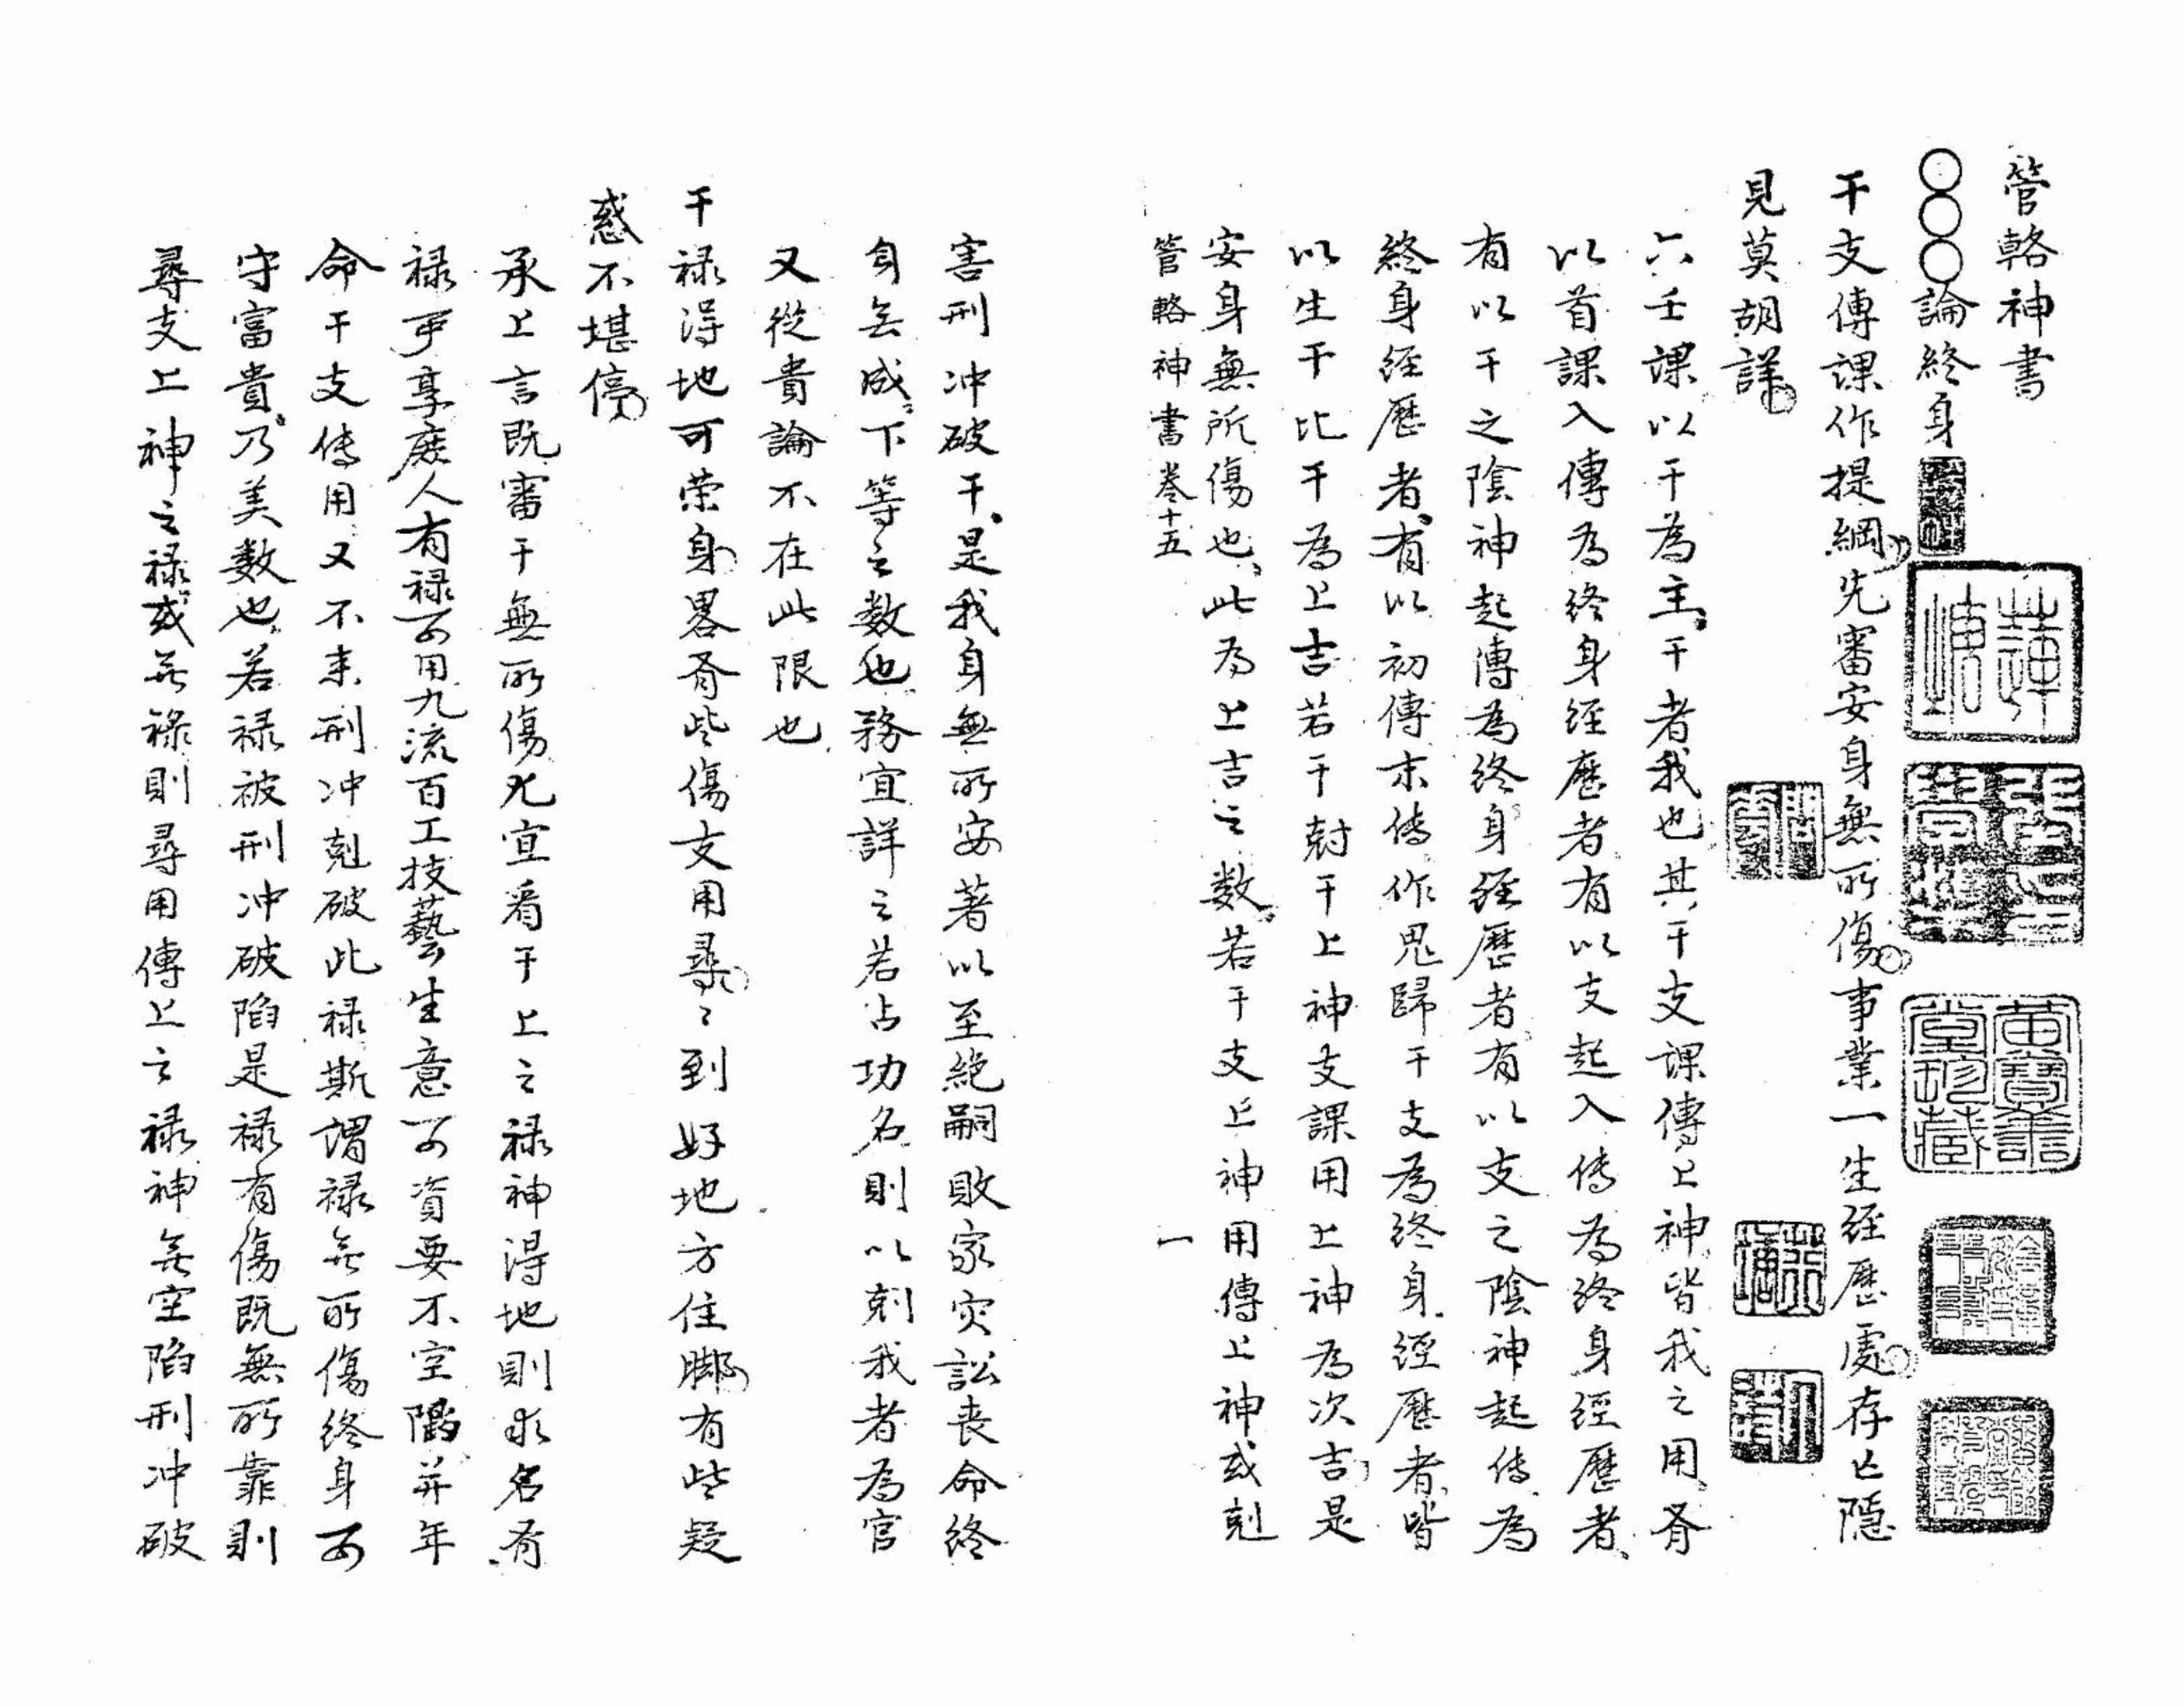 管輅神書
○○○論終身
干支傳課作提綱先審安身無所傷事業一生經歷處存亡隱
見莫胡詳
六壬課以干為主干者我也其干支課傳上神皆我之用有
以首課入傳為終身經歷者有以支起入傳為終身經歷者
有以干之陰神起傳為終身經歷者有以支之陰神起傳為
終身經歷者有以初傳末傳作鬼歸干支為終身經歷者皆
以生干比干為上吉若干尅干上神支課用上神為次吉是
安身無所傷也此為上吉之數若干支上神用傳上神或剋
管輅神書卷十五
一
害刑冲破干是我身無所安著以至絕嗣敗家灾訟丧命終
身无成下等之数也務宜詳之若占功名則以剋我者為官
又從貴論不在此限也
干禄得地可荣身畧有些傷支用尋〻到好地方住腳有些疑
惑不堪停
承上言既審干無所傷尤宜看干上之禄神得地則求名有
禄可享庶人有禄可用九流百工技藝生意可資要不空陷并年
命干支傳用又不来刑冲剋破此禄斯謂禄无所傷終身可
守富貴乃美数也若禄被刑冲破陷是禄有傷既無所靠則
尋支上神之禄或无禄則尋用傳上之禄神无空陷刑冲破